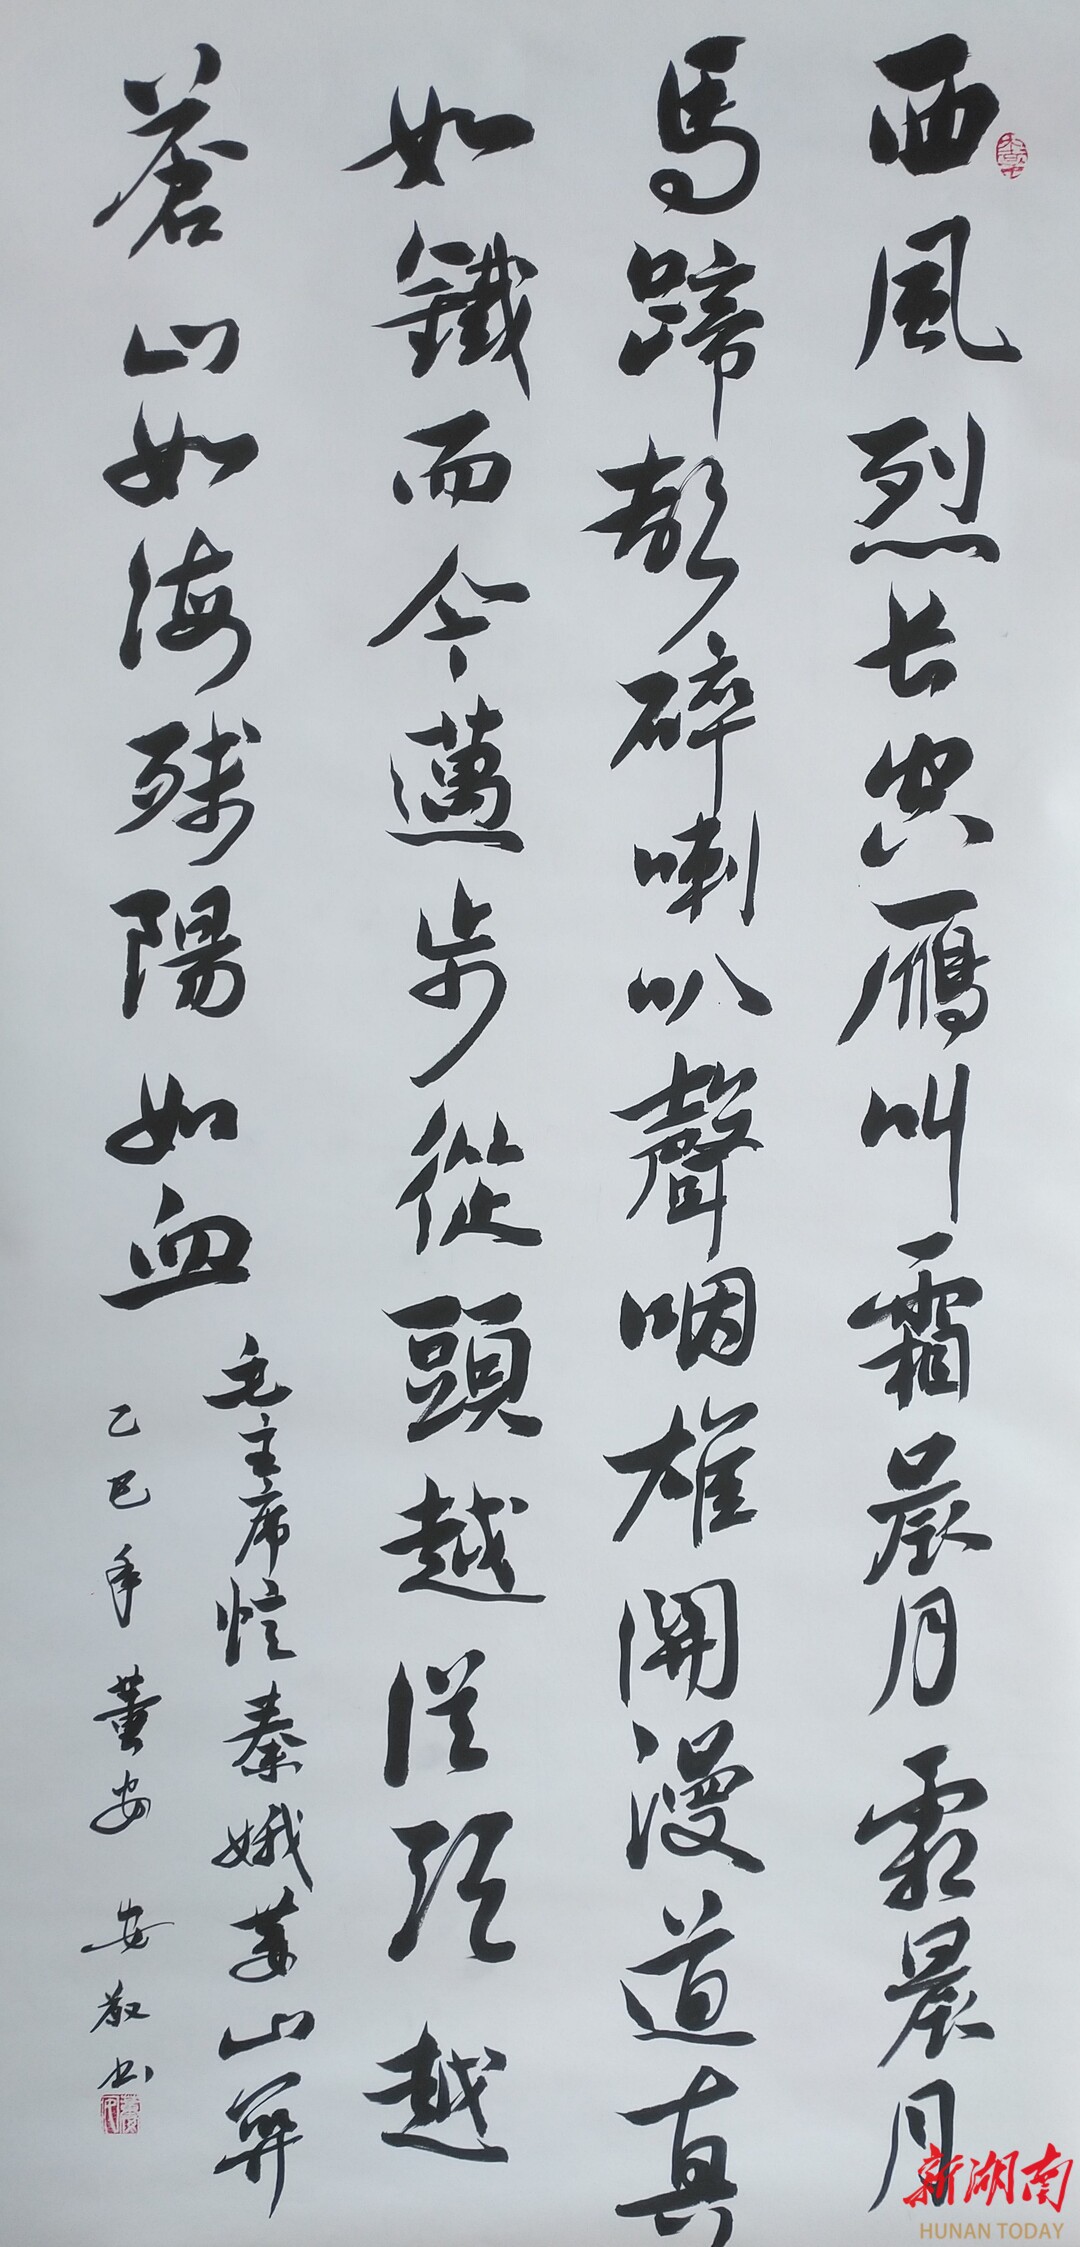 西風烈长空鴈叫霜晨月霜晨月
馬蹄聲碎喇叭聲咽雄關漫道真
如鐵而今邁步從頭越從頭越
蒼山如海殘陽如血
毛主席憶秦娥婁山關
乙巳年董安安敬书
新湖南
HUNAN TODAY